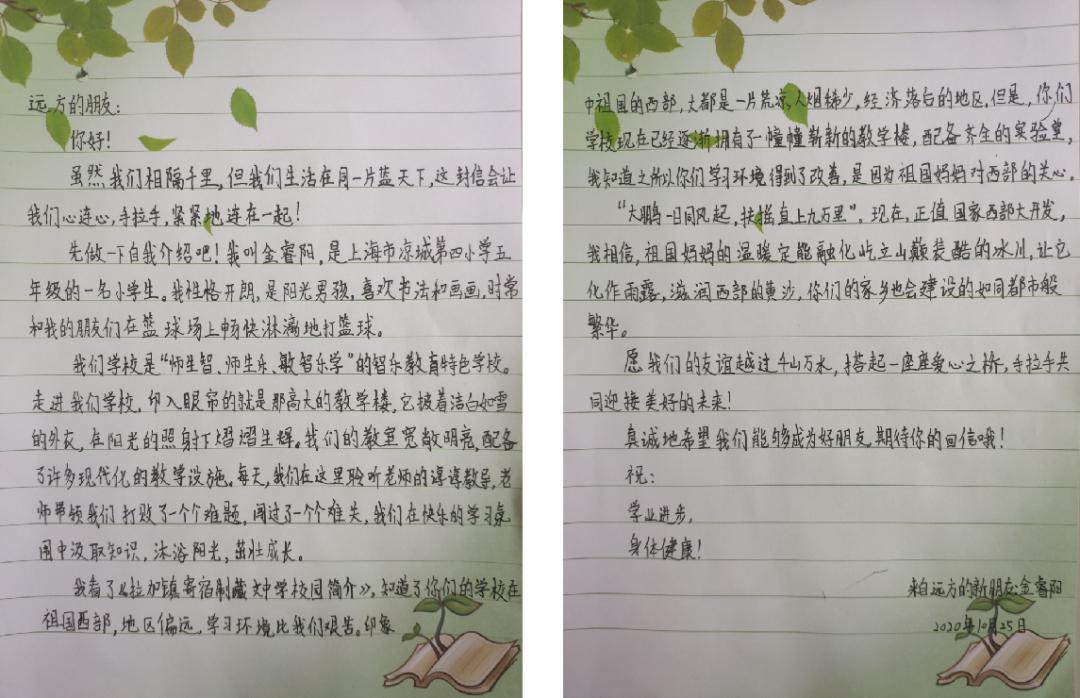 远方的朋友：
你好！
虽然我们相隔千里，但我们生活在同一片蓝天下，这封信会让
我们心连心，手拉手，紧紧地连在一起！
先做一下自我介绍吧！我叫金睿阳，是上海市凉城第四小学五
年级的一名小学生。我性格开朗，是阳光男孩，喜欢书法和画画，时常
和我的朋友们在篮球场上畅快淋漓地打篮球。
我们学校是“师生智、师生乐、敏智乐学”的智乐教育特色学校。
走进我们学校，印入眼帘的就是那高大的教学楼，它披着洁白如雪
的外衣，在阳光的照射下熠熠生辉。我们的教室宽敞明亮，配备
了许多现代化的教学设施。每天，我们在这里聆听老师的谆谆教导，老
师带领我们打败了一个个难题，闯过了一个个难关，我们在快乐的学习氛
围中汲取知识，沐浴阳光，茁壮成长。
我看了《拉加镇寄宿制藏文中学校园简介》，知道了你们的学校在
祖国西部，地区偏远，学习环境比我们艰苦。印象
中祖国的西部，大都是一片荒凉，人烟稀少，经济落后的地区，但是，你们
学校现在已经逐渐拥有了幢幢崭新的教学楼，配备齐全的实验室，
我知道之所以你们学习环境得到了改善，是因为祖国妈妈对西部的关心。
“大鹏一日同风起，扶摇直上九万里”。现在，正值国家西部大开发，
我相信，祖国妈妈的温暖定能融化屹立山巅装酷的冰川，让它
化作雨露，滋润西部的黄沙，你们的家乡也会建设的如同都市般
繁华。
愿我们的友谊越过千山万水，搭起一座座爱心之桥，手拉手共
同迎接美好的未来！
真诚地希望我们能够成为好朋友，期待你的回信哦！
祝：
学业进步，
身体健康！
来自远方的新朋友：金睿阳
2020年10月25日